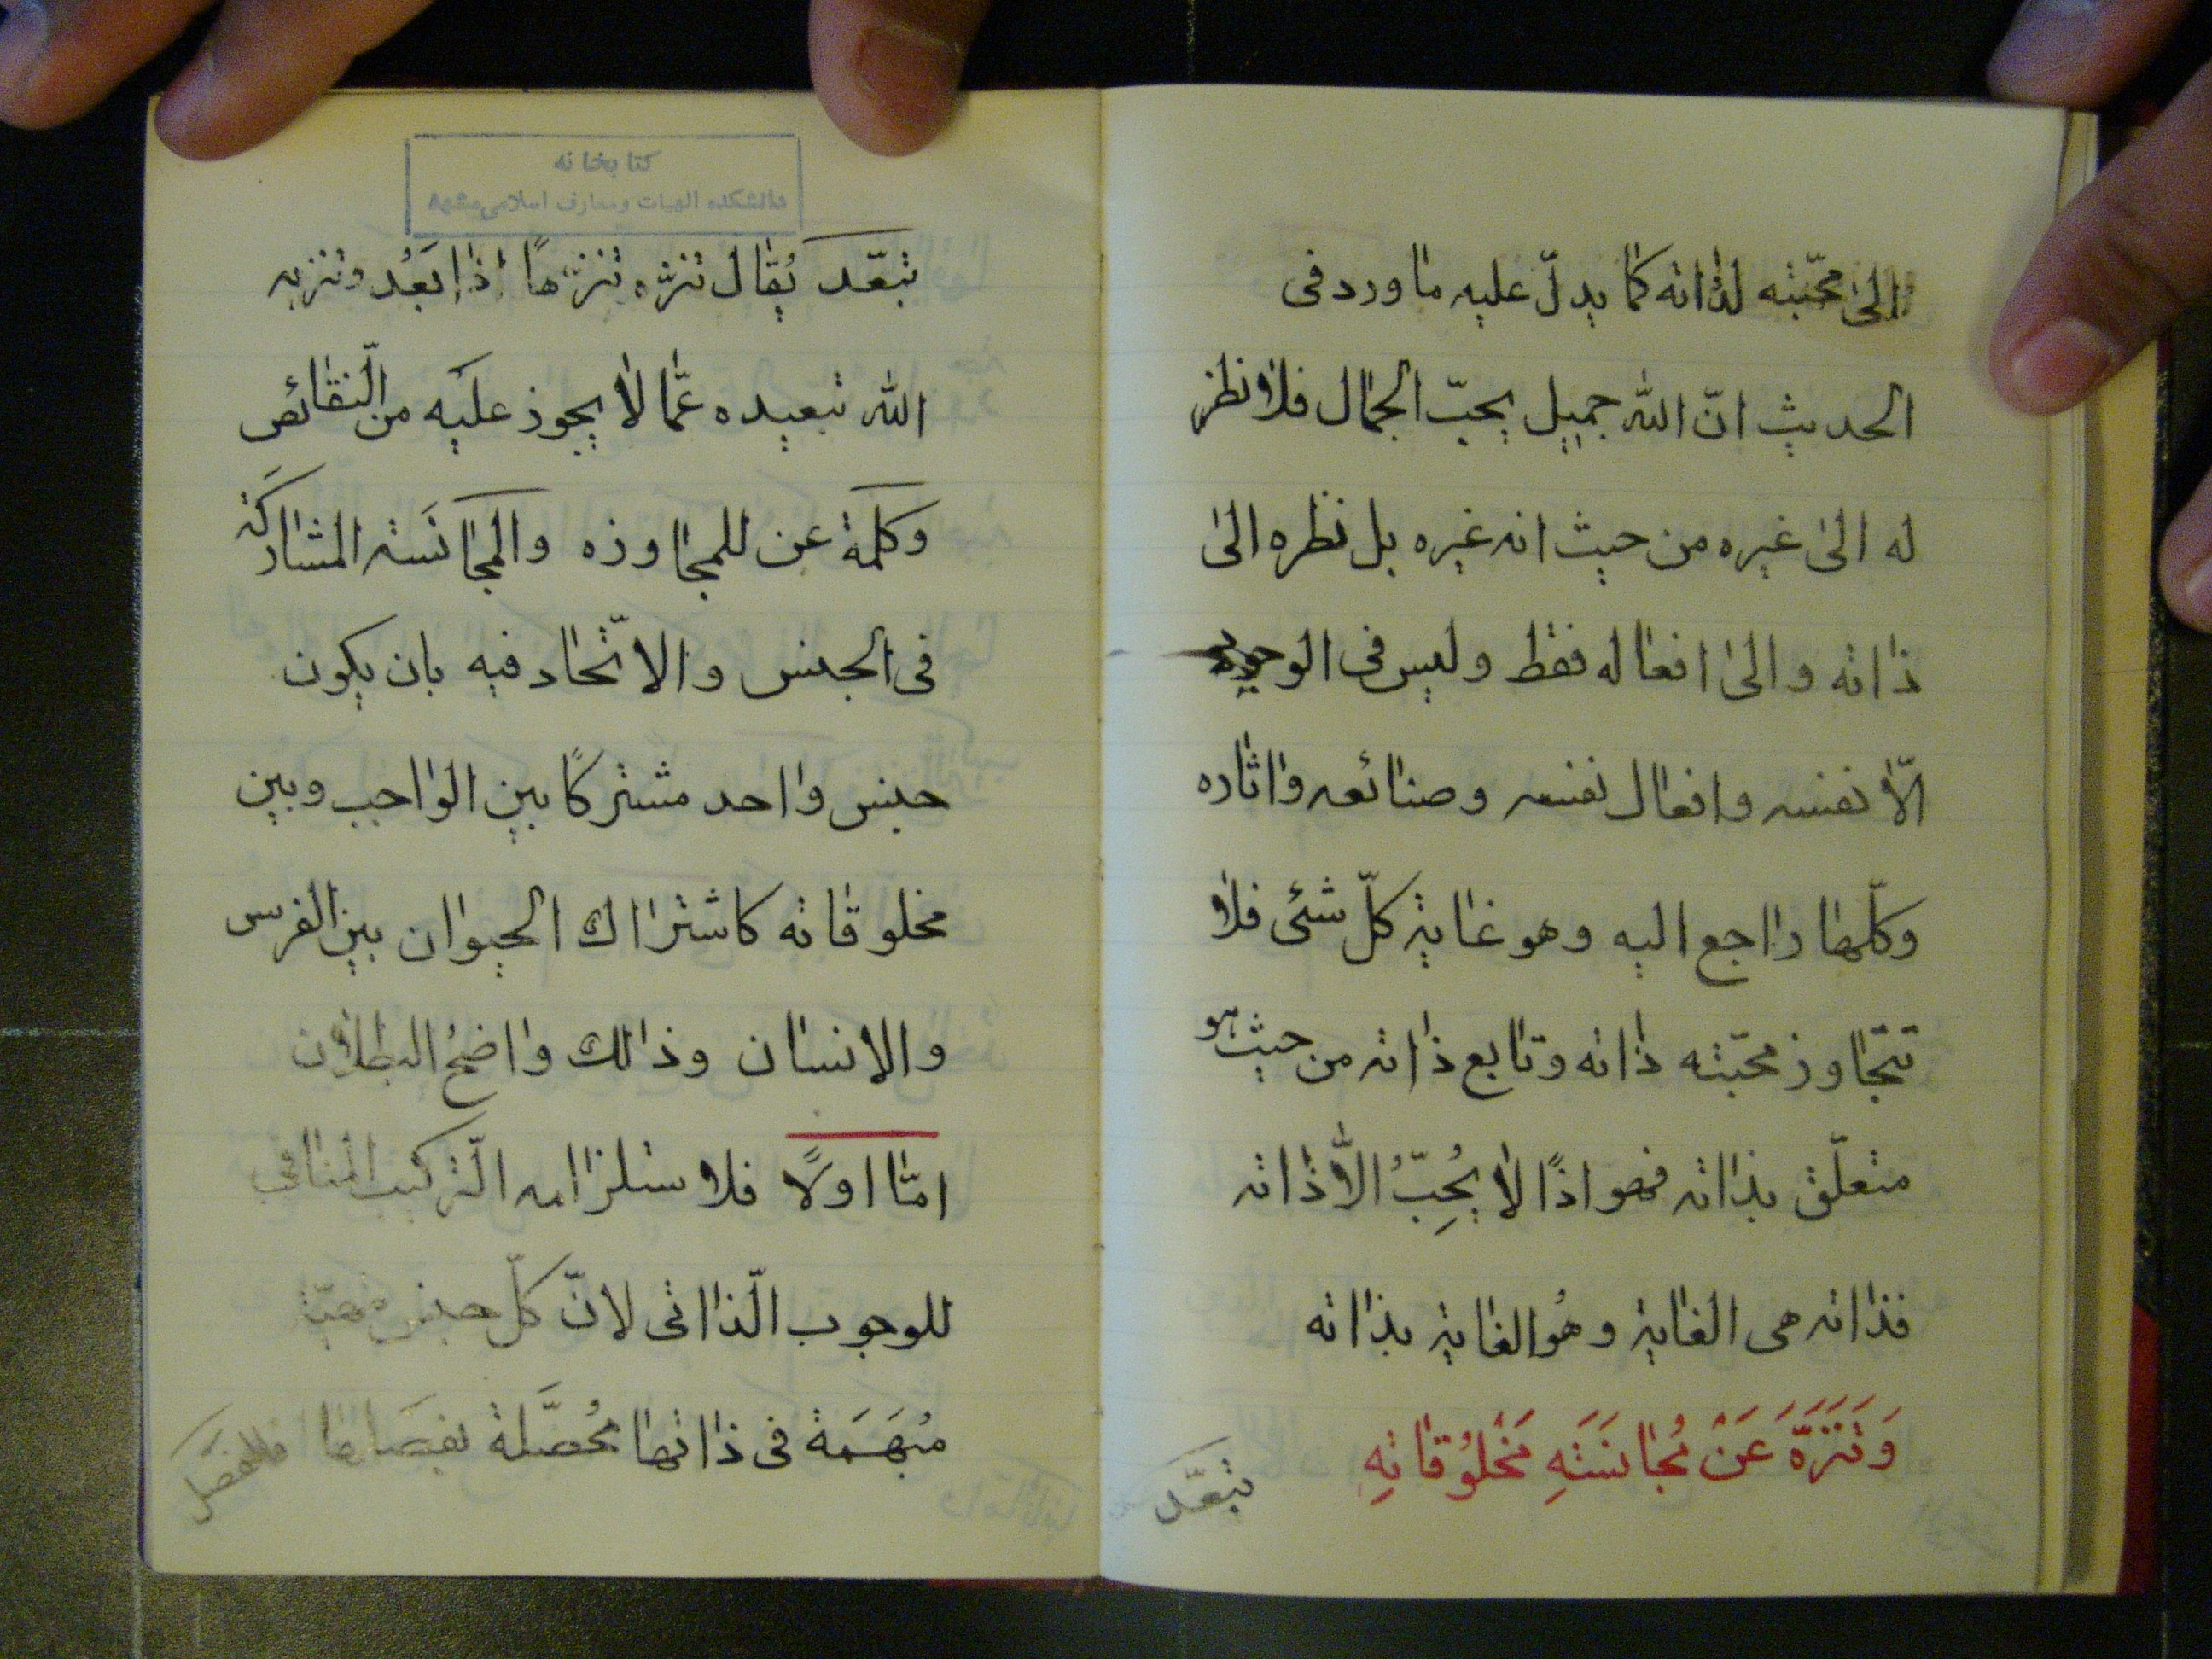 الى محبّته لذاته كما يدلّ عليه ما ورد فى
الحديث انّ الله جميل يحبّ الجمال فلا نظر
له الى غيره من حيث انه غيره بل نظره الى
ذاته و الى افعاله فقط و ليس فى الوجود
الّا نفسه و افعال نفسه و صنائعه و اثاره
و كلّها راجع اليه و هو غاية كلّ شئى فلا
تتجاوز محبّته ذاته و تابع ذاته من حيث هو
متعلّق بذاته فهو اذًا لا يُحِبّ الّا ذاته
فذاته هى الغاية و هُو الغاية بذاته
وَ تَنَزَّهَ عَنْ مُجانَسَةِ مَخْلُوقاتِهِ
تبعّد
كتابخانه
دانشكده الهيات و معارف اسلامى مشهد
تبعّد يُقال تنزّه تنزّهاً اذا بَعُد و تنزيه
الله تبعيده عمّا لا يجوز عليه من النّقائص
و كلمة عن للمجاوزه و المجانَسة المشاركة
فى الجنس و الاتّحاد فيه بان يكون
جنس واحد مشتركًا بين الواجب و بين
مخلوقاته كاشتراك الحيوان بين الفرس
و الانسان و ذالك واضحُ البطلان
امّا اولًا فلاستلزامه التّركيب المنافى
للوجوب الذّاتى لانّ كلّ جنس
مُبهَمَة فى ذاتها مُحصَّلة بفصلها
فالفصل